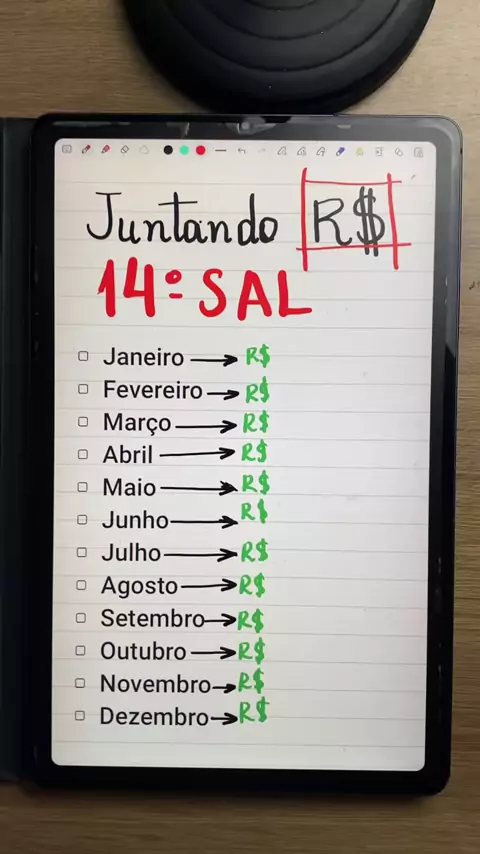 Juntando R$
14º SAL
Janeiro → R$
Fevereiro → R$
Março → R$
Abril → R$
Maio → R$
Junho → R$
Julho → R$
Agosto → R$
Setembro → R$
Outubro → R$
Novembro → R$
Dezembro → R$